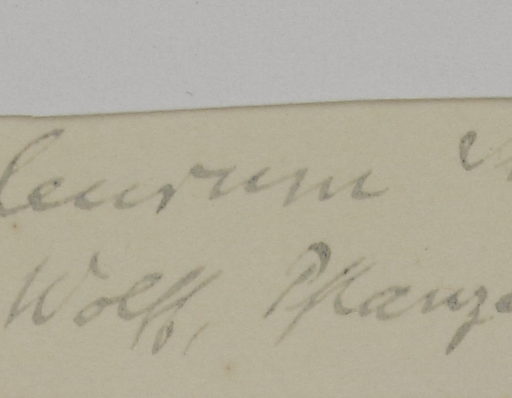 leurum
Wolff, Pflanze